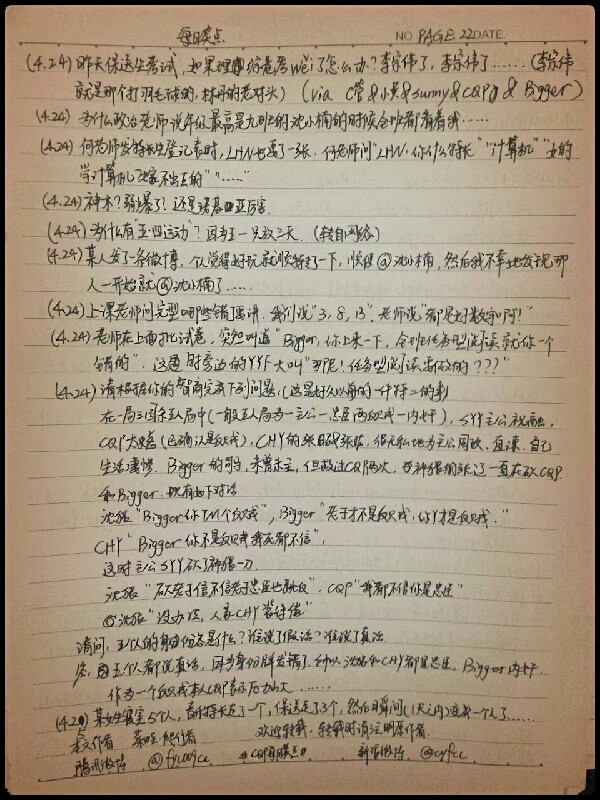 每日笑点 NO PAGE 22 DATE.
(4.24) 昨天保送生考试，如果理综卷考wei了怎么办？李宗伟了，李宗伟了……(李宗伟
就是那个打羽毛球的，林丹的老对头) (via C管&小夫&sunny&CQP的&Bigger)
(4.24) 为什么政治老师说年级最高是九班的沈小楠的时候全班都看看我……
(4.24) 何老师发特长生登记表时，LHN也要了一张，何老师问"LHN，你什么特长" "计算机" "女的
学计算机嫁不出去的" "……"
(4.24) 神木？弱爆了！还是诺基亚厉害
(4.24) 为什么有"五·四运动"？因为五一只放三天。(转自网络)
(4.24) 某人发了一条微博，仅觉得好玩就转了一下，顺便@沈小楠，然后我不幸地发现那
人一开始就@沈小楠了……
(4.24) 上课老师问完型哪些错要讲，我们说"3，8，13"，老师说"都是好数字啊！"
(4.24) 老师在上面批试卷，突然叫道"Bigger，你上来一下，全班任务型阅读就你一个
错的"，这时旁边的YYF大叫"那尼！任务型阅读要做的？？？"
(4.24) 请根据你的智商完成下列问题，(这是好久以前的一件特二的事)
在一局三国杀五人局中(一般五人局为一主公一忠臣两反贼一内奸)，SYY主公祝融，
CQP大嘴(已确认是反贼)，CHY的张昭张纮，
生活凄惨. Bigger的司马，未曾杀主，但救过CQP两次，一直在砍CQP
和Bigger. 现有如下对话
沈张"Bigger你TM个反贼"，Bigger"老子才不是反贼，你丫才是反贼."
CHY"Bigger你不是反贼我死都不信"，
这时主公SYY砍了神张一刀
沈张"砍老子信不信老子忠臣也跳反"，CQP"我都不信你是忠臣"
沈张"没办法，人家CHY装得像"
请问，五人的身份各是什么？谁说了假话？谁说了真话
答：五个人都说真话，因为身份牌发错了，所以沈张和CHY都是忠臣，Bigger内奸.
作为一个反贼本人CQP表示压力大……
(4.24) 某女生寝室5个人，音乐特长走了一个，保送走了3个，然后瞬间(1天之内)变成一个人了……
本文作者 欢迎转载，转载时请注明原作者.
腾讯微博 #CQP每日笑点# 新浪微博 @cyfcc